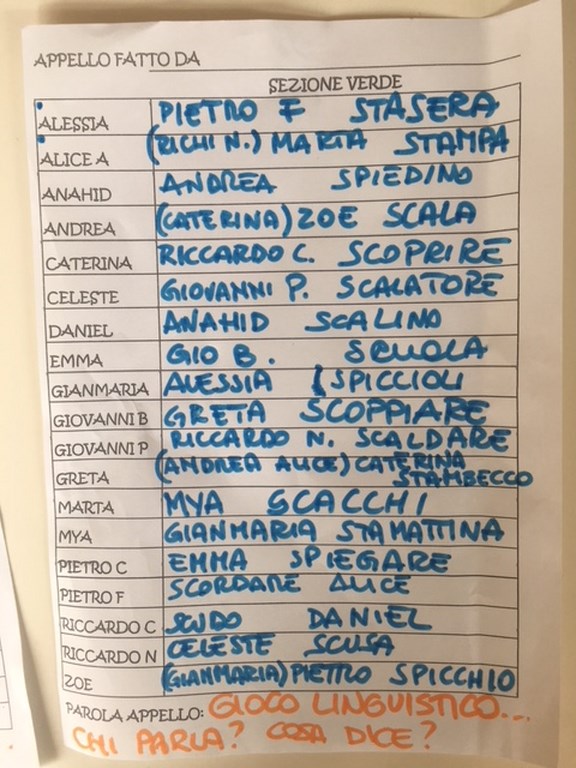 APPELLO FATTO DA
SEZIONE VERDE
ALESSIA PIETRO F STASERA
ALICE A (RICHI N.) MARTA STAMPA
ANAHID ANDREA SPIEDINO
ANDREA (CATERINA) ZOE SCALA
CATERINA RICCARDO C. SCOPRIRE
CELESTE GIOVANNI P. SCALATORE
DANIEL ANAHID SCALINO
EMMA GIO B. SCUOLA
GIANMARIA ALESSIA SPICCIOLI
GIOVANNI B GRETA SCOPPIARE
GIOVANNI P RICCARDO N. SCALDARE
GRETA (ANDREA ALICE) CATERINA
STAMBECCO
MARTA MYA SCACCHI
MYA GIANMARIA STAMATTINA
PIETRO C EMMA SPIEGARE
PIETRO F SCORDARE ALICE
RICCARDO C SCUDO DANIEL
RICCARDO N CELESTE SCUSA
ZOE (GIANMARIA) PIETRO SPICCHIO
PAROLA APPELLO: GIOCO LINGUISTICO...
CHI PARLA? COSA DICE?